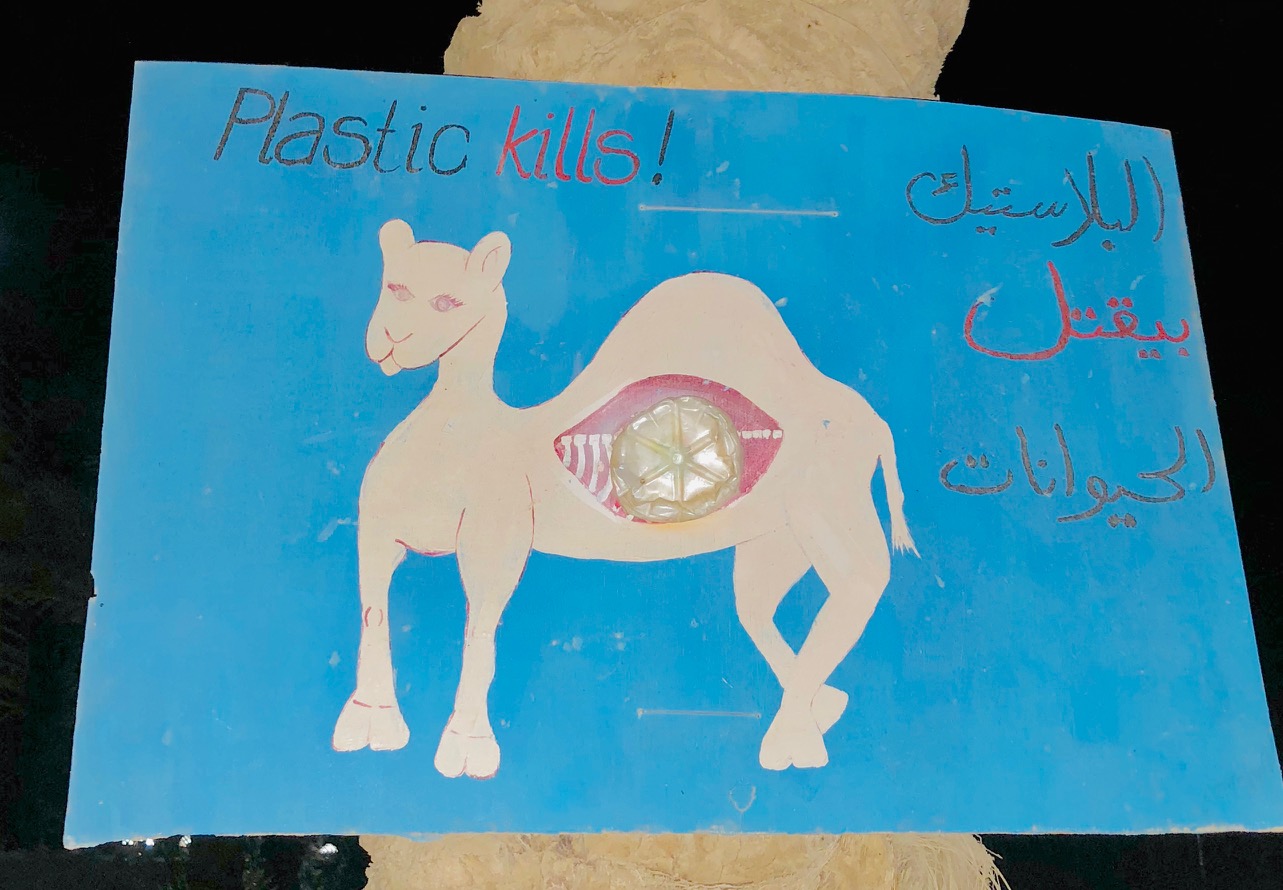 Plastic kills!
البلاستيك
بيقتل
الحيوانات